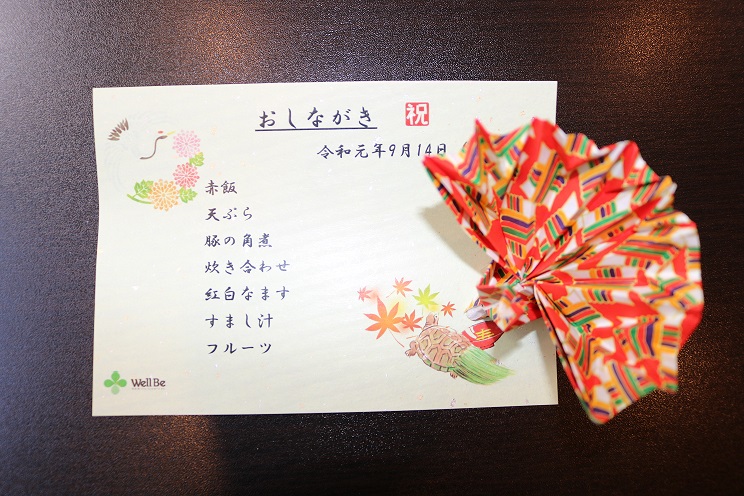 おしながき 祝
令和元年9月14日
赤飯
天ぷら
豚の角煮
炊き合わせ
紅白なます
すまし汁
フルーツ
Well Be